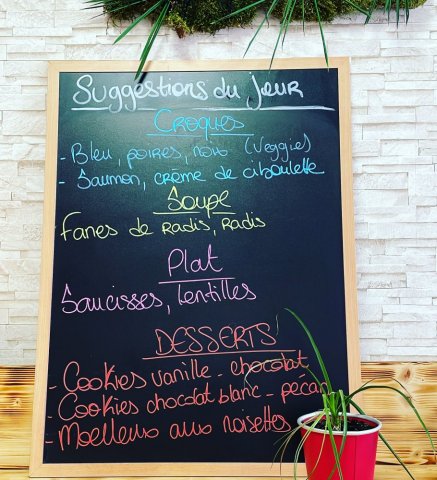 Suggestions du jour
Croques
- Bleu, poires, noix (Veggie)
- Saumon, crème de ciboulette
Soupe
Fanes de radis, radis
Plat
Saucisses, lentilles
DESSERTS
- Cookies vanille - chocolat
- Cookies chocolat blanc - pécan
- Moelleux aux noisettes